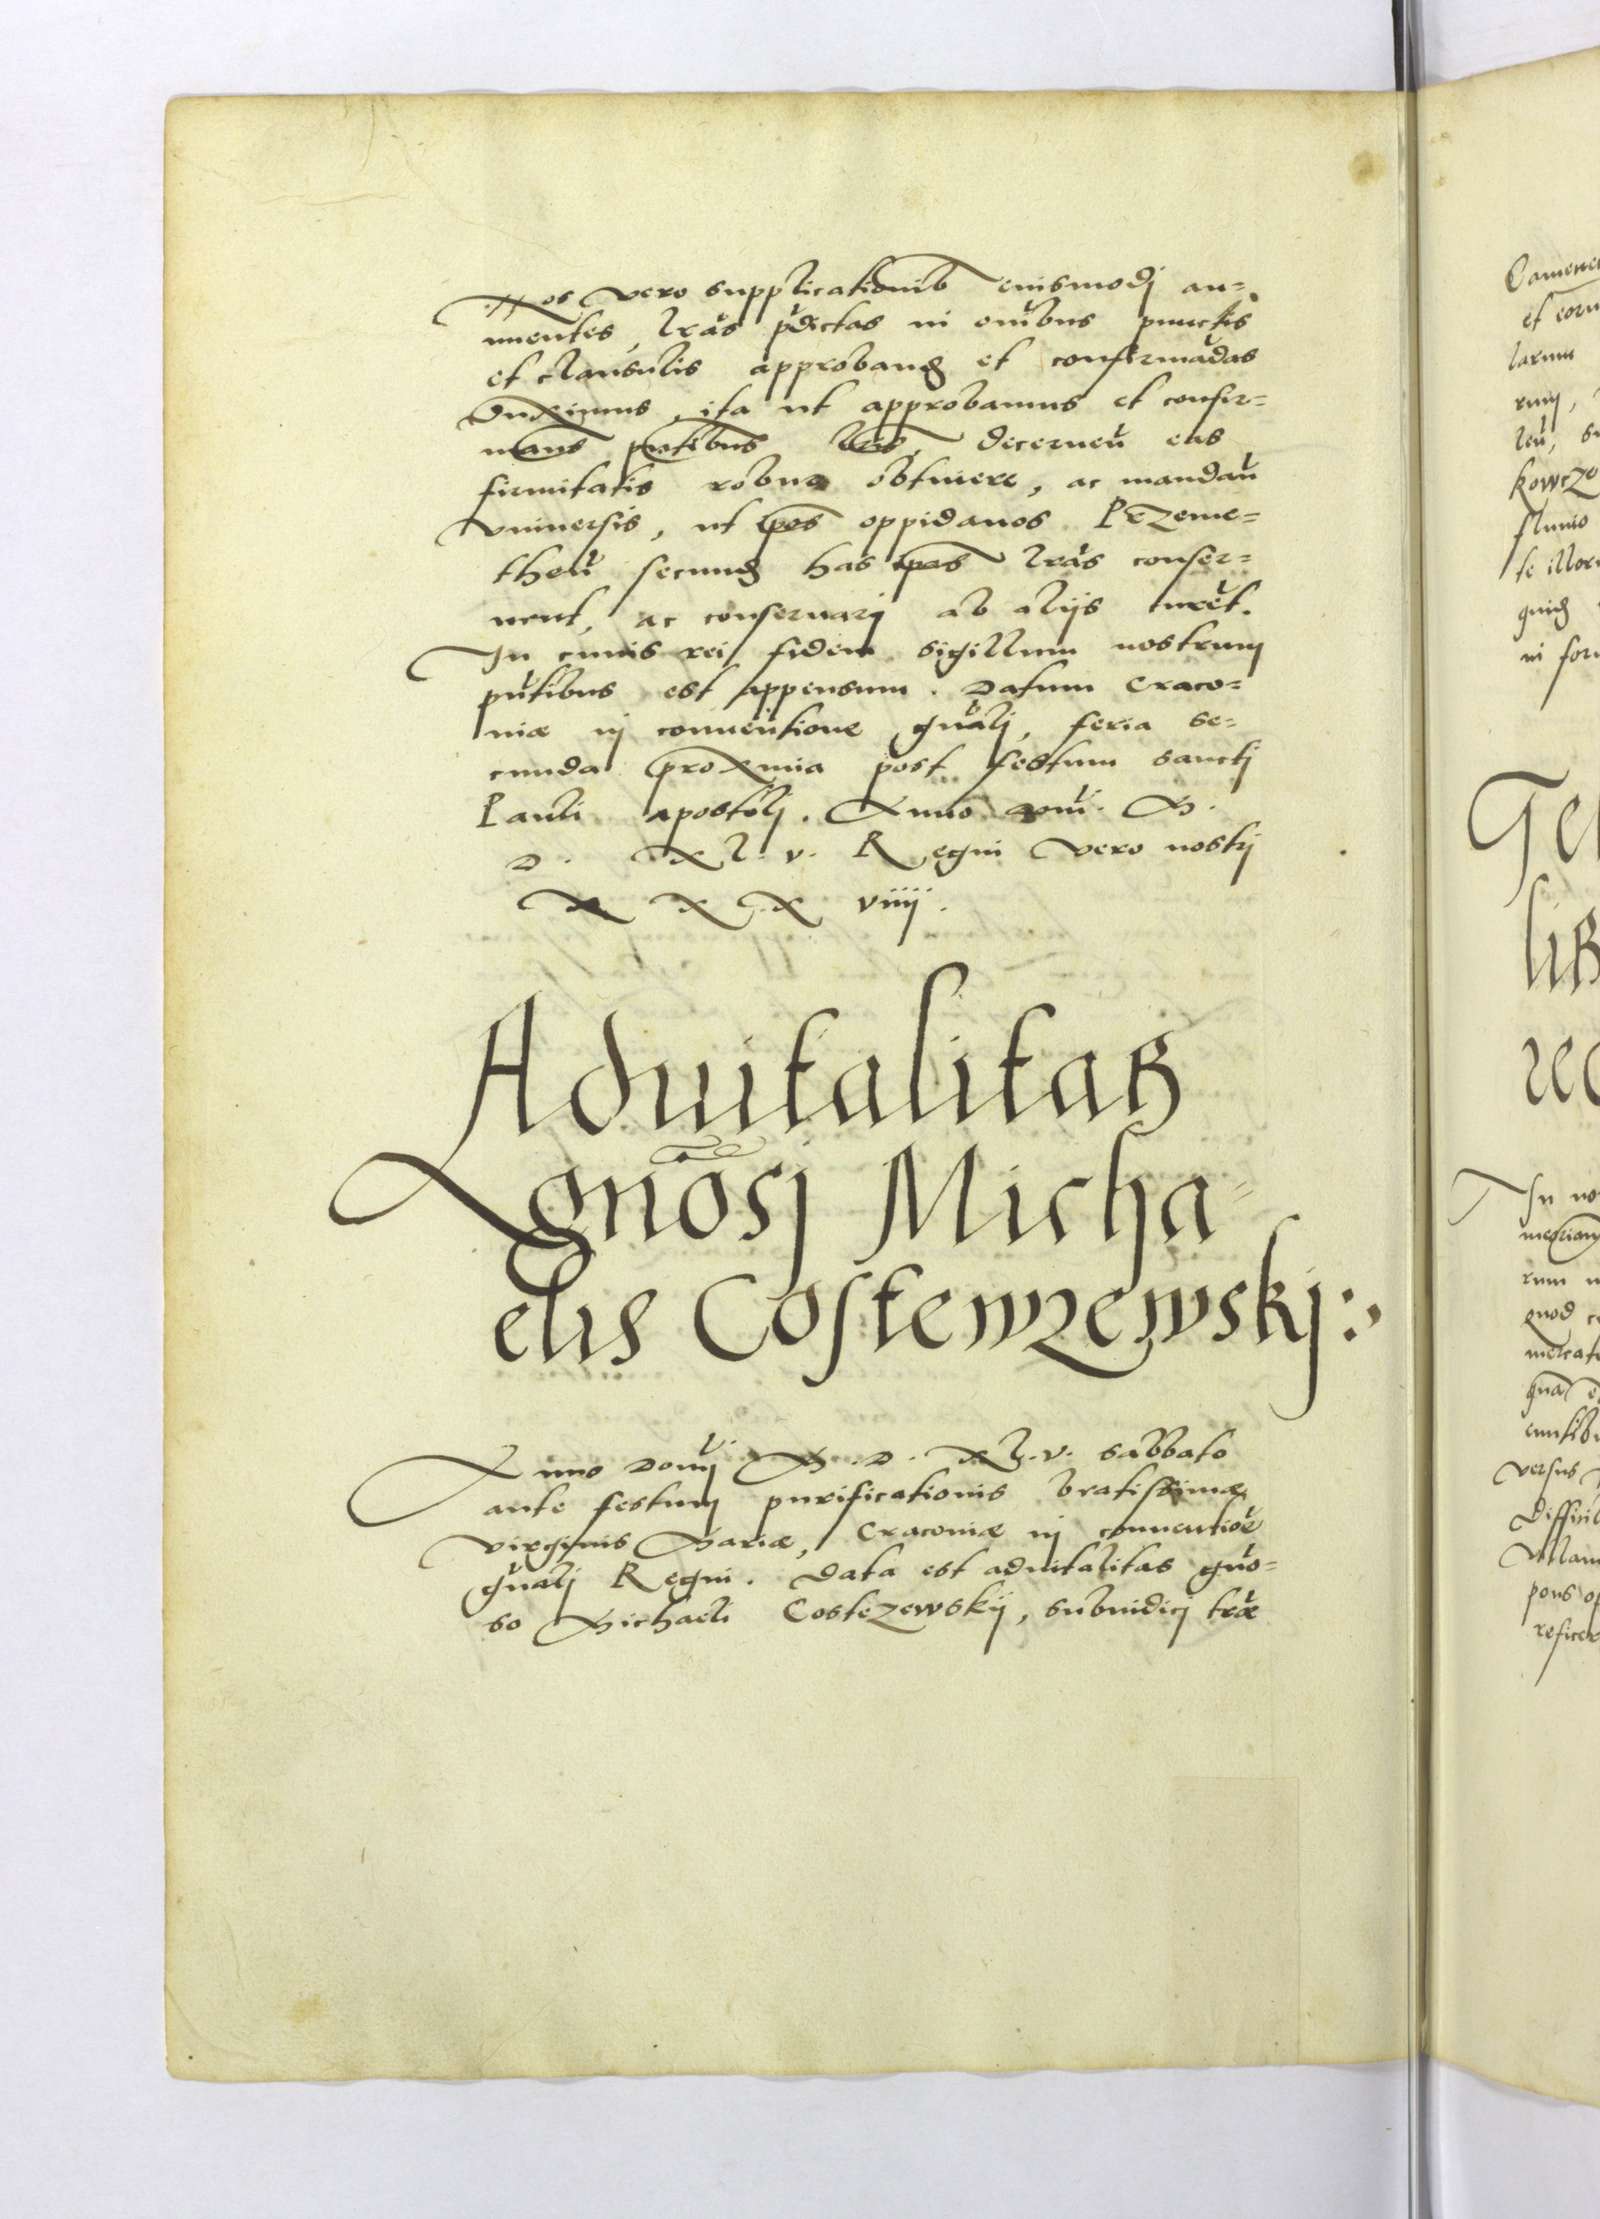 Nos vero supplicationib eiusmodj an-
nuentes, lras pdictas in omibus punctis
et clausulis approband et confirmadas
duximus, ita ut approbamus et confir-
mams pntibus lris, decerneu eas
firmitatis robur obtinere, ac mandau
vniuersis, ut ipos oppidanos Przeme-
theu secund has ipas lras conser-
uent, ac conseruarj ab alijs curet.
In cuius rei fidem sigillum nostrum
pntibus est appensum. Datum Craco-
niæ in conuentione gnalj, feria se-
cunda proxima post festum sanctj
Pauli apostolj. Anno domi. M.
D. Xl. v. Regni vero nostrj
X X X viiij.
Aduitalitas
Gnosj Micha-
elis Costewzewskj:
Anno Domj M. D. Xl. v. sabbato
ante festum purificationis beatissimæ
virginis Mariæ, Cracouiæ in conuentioe
gnalj Regni. Data est aduitalitas gno-
so Michaeli Costezewskij, subiudicj træ
Camenec
et eoru
larum
kowcze
fluuio
te illoru
in for
Ge
liB
rec
In no
rum
quod
mercat
versus
difficil
vllam
pons op
reficer